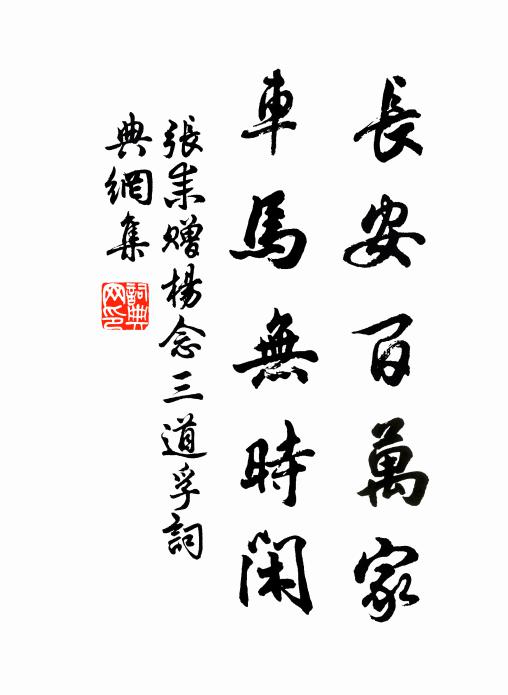 長安百萬家
車馬無時閑
張耒贈楊念三道孚詞
典網集
詞典网印